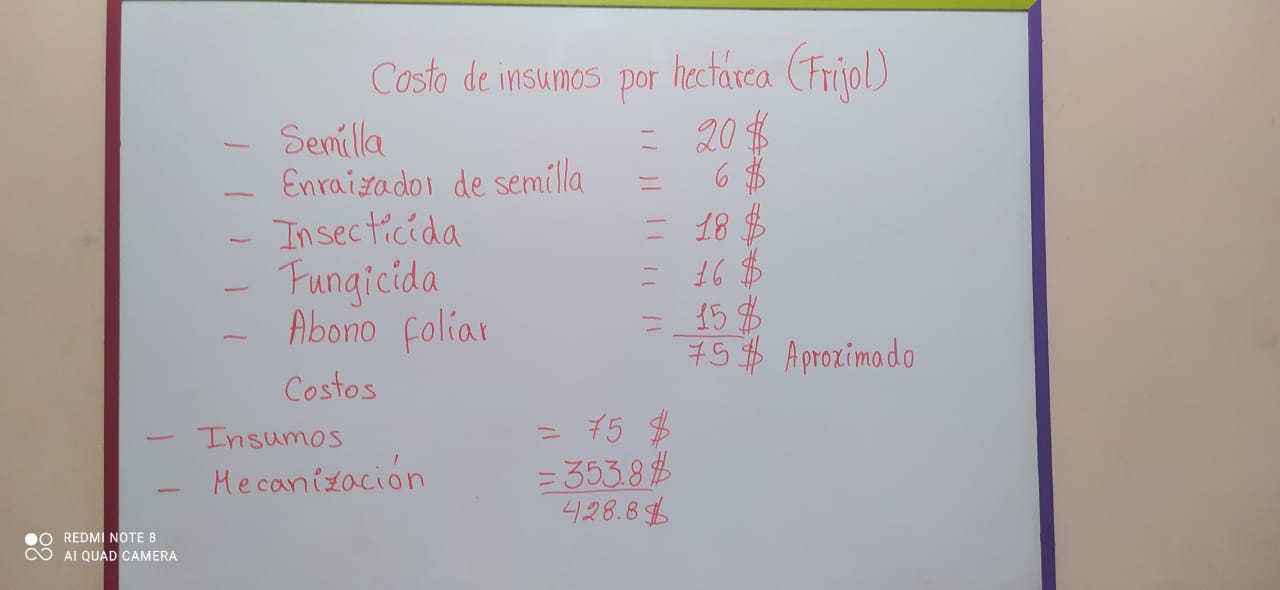 Costo de insumos por hectárea (Frijol)
- Semilla = 20 $
- Enraizador de semilla = 6 $
- Insecticida = 18 $
- Fungicida = 16 $
- Abono foliar = 15 $
75 $ Aproximado
Costos
- Insumos = 75 $
- Mecanización = 353.8 $
428.8 $
REDMI NOTE 8
AI QUAD CAMERA